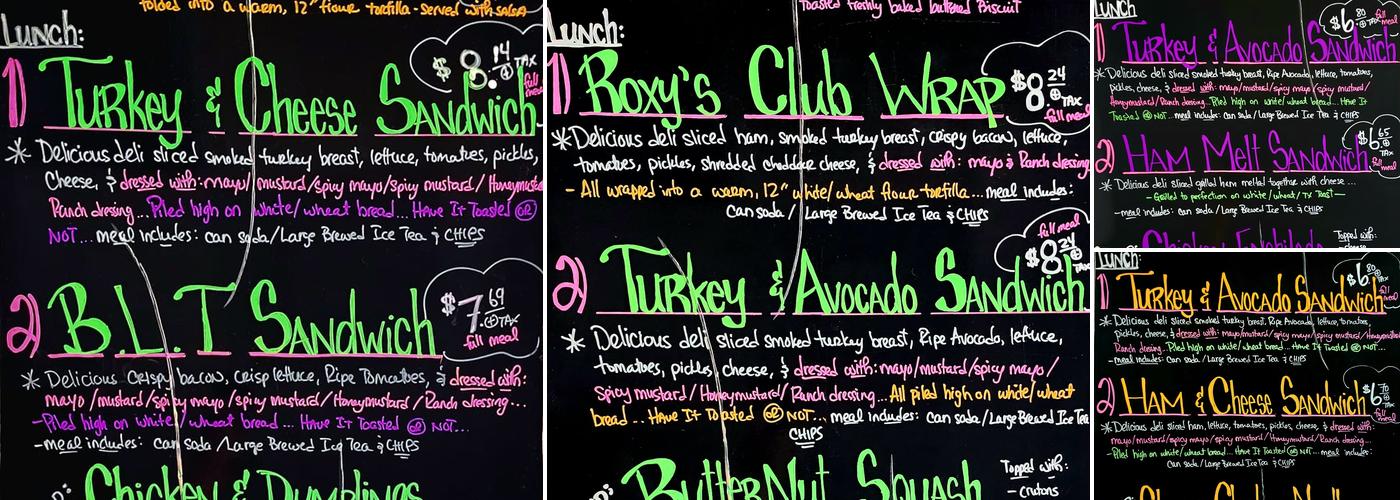 folded into a warm, 12" flour tortilla - served with salsa
Lunch:
1) Turkey & Cheese Sandwich
$8.14 ⊕TAX full meal
* Delicious deli sliced smoked turkey breast, lettuce, tomatoes, pickles,
Cheese, & dressed with: mayo/mustard/spicy mayo/spicy mustard/Honeymustard
Ranch dressing... Piled high on white/wheat bread... Have It Toasted OR
NOT... meal includes: can soda/Large Brewed Ice Tea & CHIPS
2) B.L.T Sandwich
$7.69 ⊕TAX full meal
* Delicious Crispy bacon, crisp lettuce, Ripe Tomatoes, & dressed with:
mayo/mustard/spicy mayo/spicy mustard/Honeymustard/Ranch dressing...
-Piled high on white/wheat bread... Have It Toasted OR NOT...
-meal includes: can soda/Large Brewed Ice Tea & CHIPS
Chicken & Dumplings
Toasted freshly baked buttered Biscuit
Lunch:
1) Roxy's Club Wrap
$8.24 ⊕TAX full meal
*Delicious deli sliced ham, smoked turkey breast, crispy bacon, lettuce,
tomatoes, pickles, shredded cheddar cheese, & dressed with: mayo & Ranch dressing
- All wrapped into a warm, 12" white/wheat flour tortilla... meal includes:
Can soda/Large Brewed Ice Tea & CHIPS
2) Turkey & Avocado Sandwich
full meal $8.24 ⊕TAX
* Delicious deli sliced smoked turkey breast, Ripe Avocado, lettuce,
tomatoes, pickles, cheese, & dressed with: mayo/mustard/spicy mayo/
Spicy mustard/Honeymustard/Ranch dressing... All piled high on white/wheat
bread... Have It Toasted OR NOT... meal includes: can soda/Large Brewed Ice Tea
CHIPS
ButterNut Squash
Topped with:
- croutons
Lunch:
1) Turkey & Avocado Sandwich
$6.80 ⊕TAX full meal
* Delicious deli sliced smoked turkey breast, Ripe Avocado, lettuce, tomatoes,
pickles, cheese, & dressed with: mayo/mustard/spicy mayo/spicy mustard/
Honeymustard/Ranch dressing... Piled high on white/wheat bread... Have It
Toasted OR NOT... meal includes: can soda/Large Brewed Ice Tea & CHIPS
2) Ham Melt Sandwich
$6.65 ⊕TAX full meal
* Delicious deli sliced grilled ham melted together with cheese...
- Grilled to perfection on white/wheat/TX Toast -
-meal includes: can soda/Large Brewed Ice Tea & CHIPS
Topped with:
Lunch:
1) Turkey & Avocado Sandwich
$6.80 ⊕TAX full meal
* Delicious deli sliced smoked turkey breast, Ripe Avocado, lettuce, tomatoes,
pickles, cheese, & dressed with: mayo/mustard/spicy mayo/spicy mustard/Honeymustard
Ranch dressing... Piled high on white/wheat bread... Have It Toasted OR NOT...
-meal includes: can soda/Large Brewed Ice Tea & CHIPS
2) Ham & Cheese Sandwich
$6.70 ⊕TAX full meal
* Delicious deli sliced ham, lettuce, tomatoes, pickles, cheese, & dressed with:
mayo/mustard/spicy mayo/spicy mustard/Honeymustard/Ranch dressing...
-Piled high on white/wheat bread... Have It Toasted OR NOT... meal includes:
Can soda/Large Brewed Ice Tea & CHIPS